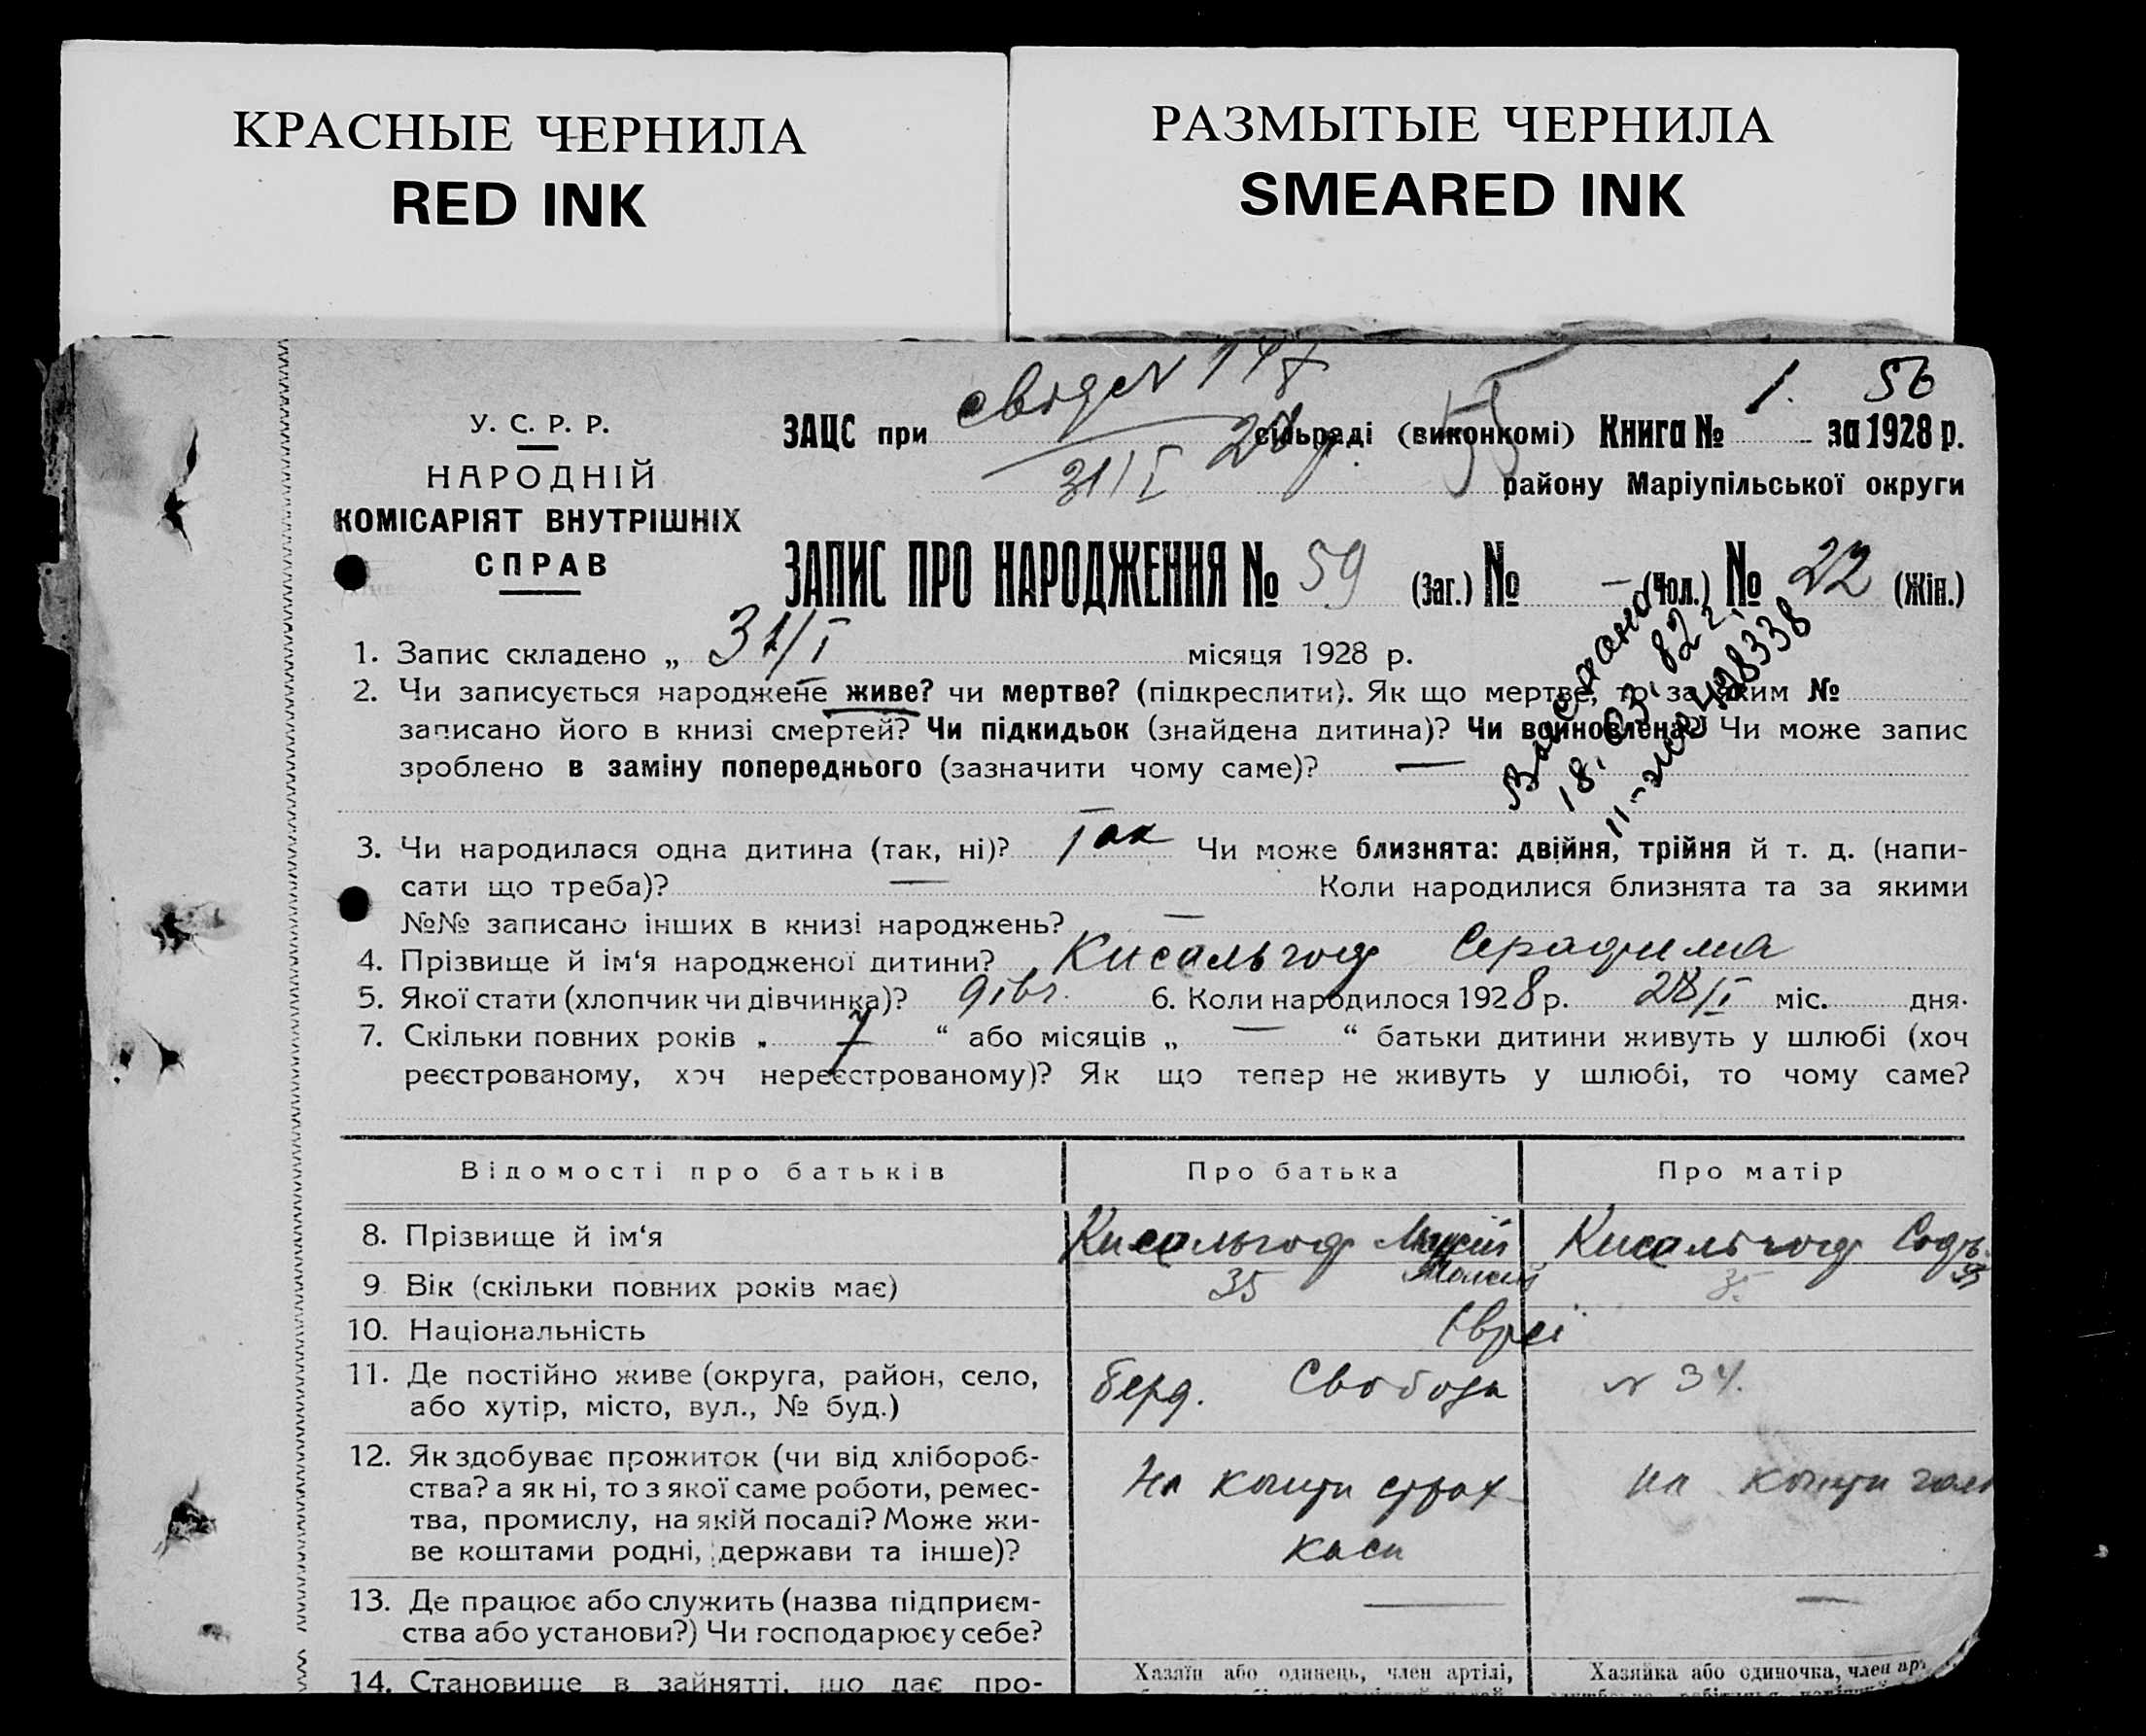 КРАСНЫЕ ЧЕРНИЛА
RED INK
РАЗМЫТЫЕ ЧЕРНИЛА
SMEARED INK
У. С. Р. Р.
НАРОДНІЙ
КОМІСАРІЯТ ВНУТРІШНІХ
СПРАВ
1. 56
ЗАЦС при сільраді (виконкомі) Книга № за 1928 р.
31/I 28 р.
району Маріупільської округи
ЗАПИС ПРО НАРОДЖЕННЯ № 59 (Заг.) № – (Чол.) № 22 (Жін.)
1. Запис складено „ 31/I місяця 1928 р.
2. Чи записується народжене живе? чи мертве? (підкреслити). Як що мертве, то за яким №
записано його в книзі смертей? Чи підкидьок (знайдена дитина)? Чи војновлена? Чи може запис
зроблено в заміну попереднього (зазначити чому саме)? —
18. 03. 82 г.
428338
3. Чи народилася одна дитина (так, ні)? Так Чи може близнята: двійня, трійня й т. д. (напи-
сати що треба)? — Коли народилися близнята та за якими
№№ записано інших в книзі народжень? —
4. Прізвище й ім‘я народженої дитини? Кисельгоф Серафима
5. Якої стати (хлопчик чи дівчинка)? дівч. 6. Коли народилося 1928 р. 28/I міс. дня.
7. Скільки повних років „ 7 “ або місяців „ — “ батьки дитини живуть у шлюбі (хоч
реєстрованому, хоч нереєстрованому)? Як що тепер не живуть у шлюбі, то чому саме?
Відомості про батьків Про батька Про матір
8. Прізвище й ім‘я Кисельгоф Мусій Кисельгоф
Моисей
9. Вік (скільки повних років має) 35 35
10. Національність Євреї
11. Де постійно живе (округа, район, село,
або хутір, місто, вул., № буд.)
Берд. Свободи № 34.
12. Як здобуває прожиток (чи від хлібороб-
ства? а як ні, то з якої саме роботи, ремес-
тва, промислу, на якій посаді? Може жи-
ве коштами родні, держави та інше)?
На кошти страх
каси
На кошти чол
13. Де працює або служить (назва підприєм-
ства або установи?) Чи господарює у себе?
— —
14. Становище в зайнятті, що дає про-
Хазяїн або одинець, член артілі,
Хазяйка або одиночка, член ар